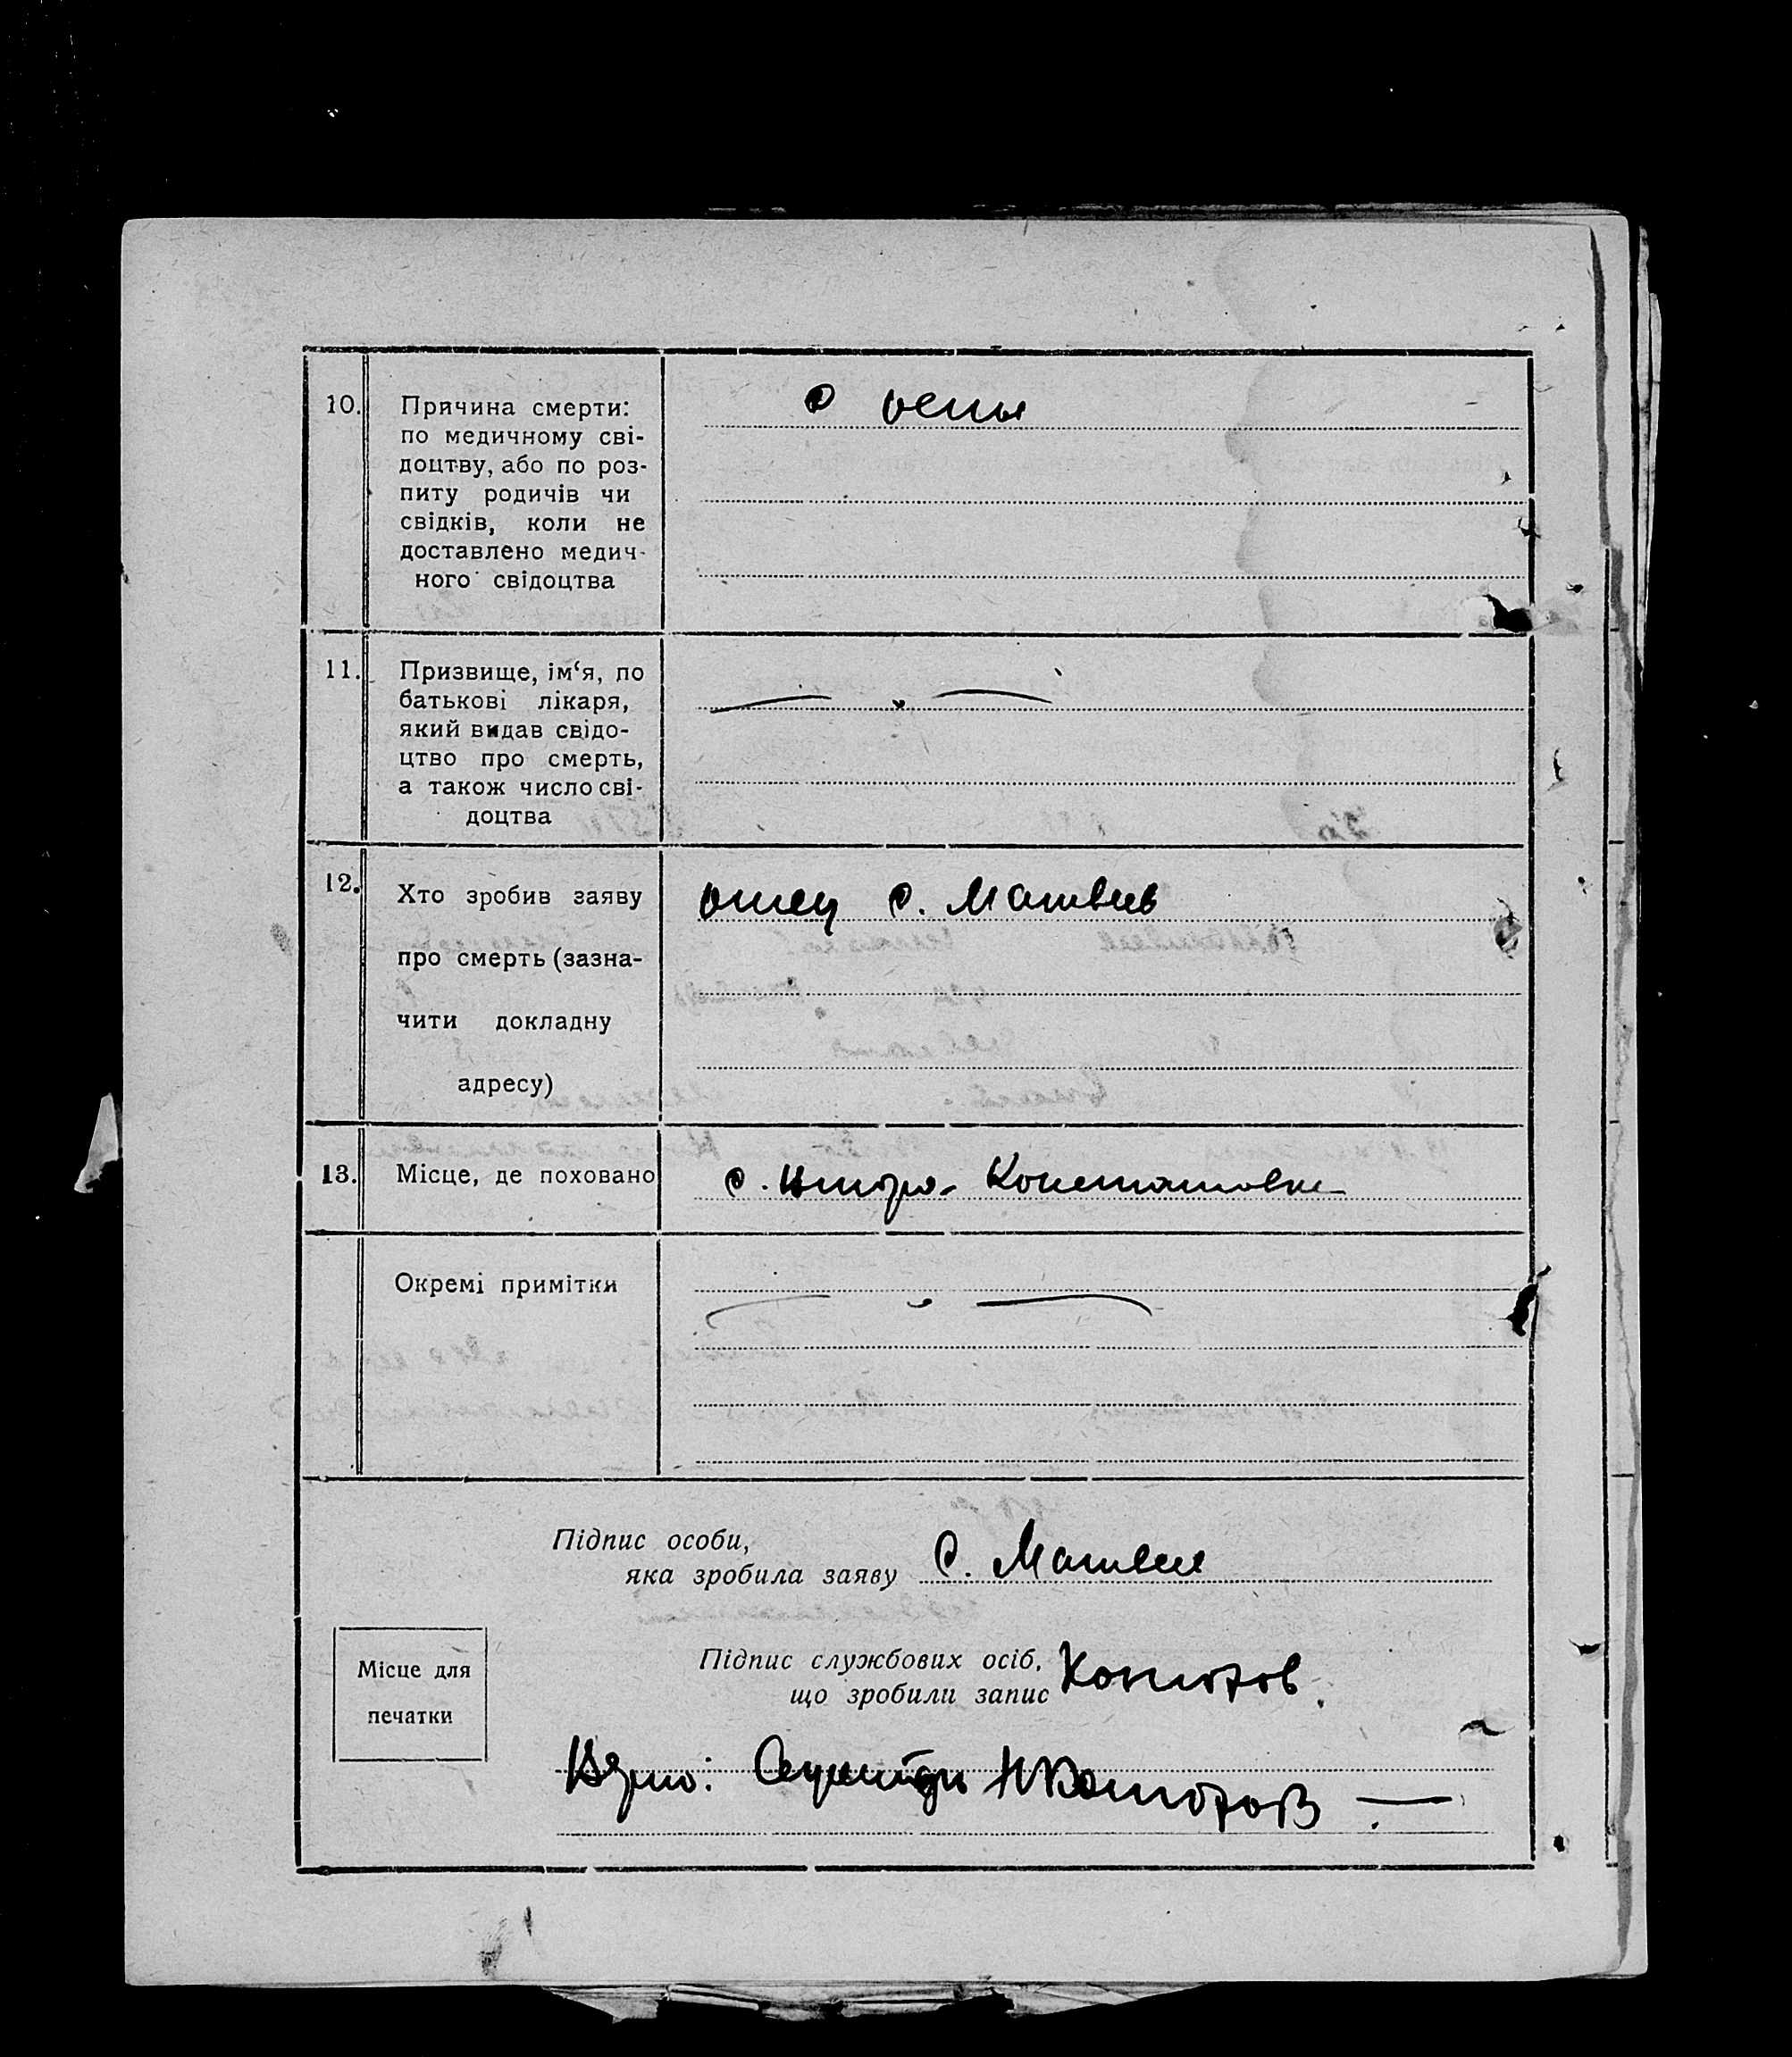 10. Причина смерти:
по медичному сві-
доцтву, або по роз-
питу родичів чи
свідків, коли не
доставлено медич-
ного свідоцтва
оспы
11. Призвище, ім‘я, по
батькові лікаря,
який видав свідо-
цтво про смерть,
а також число сві-
доцтва
12. Хто зробив заяву
про смерть (зазна-
чити докладну
адресу)
отец С. Матвеев
13. Місце, де поховано
с. Константиновка
Окремі примітки
Підпис особи,
яка зробила заяву С. Матвеев
Підпис службових осіб,
що зробили запис
Місце для
печатки